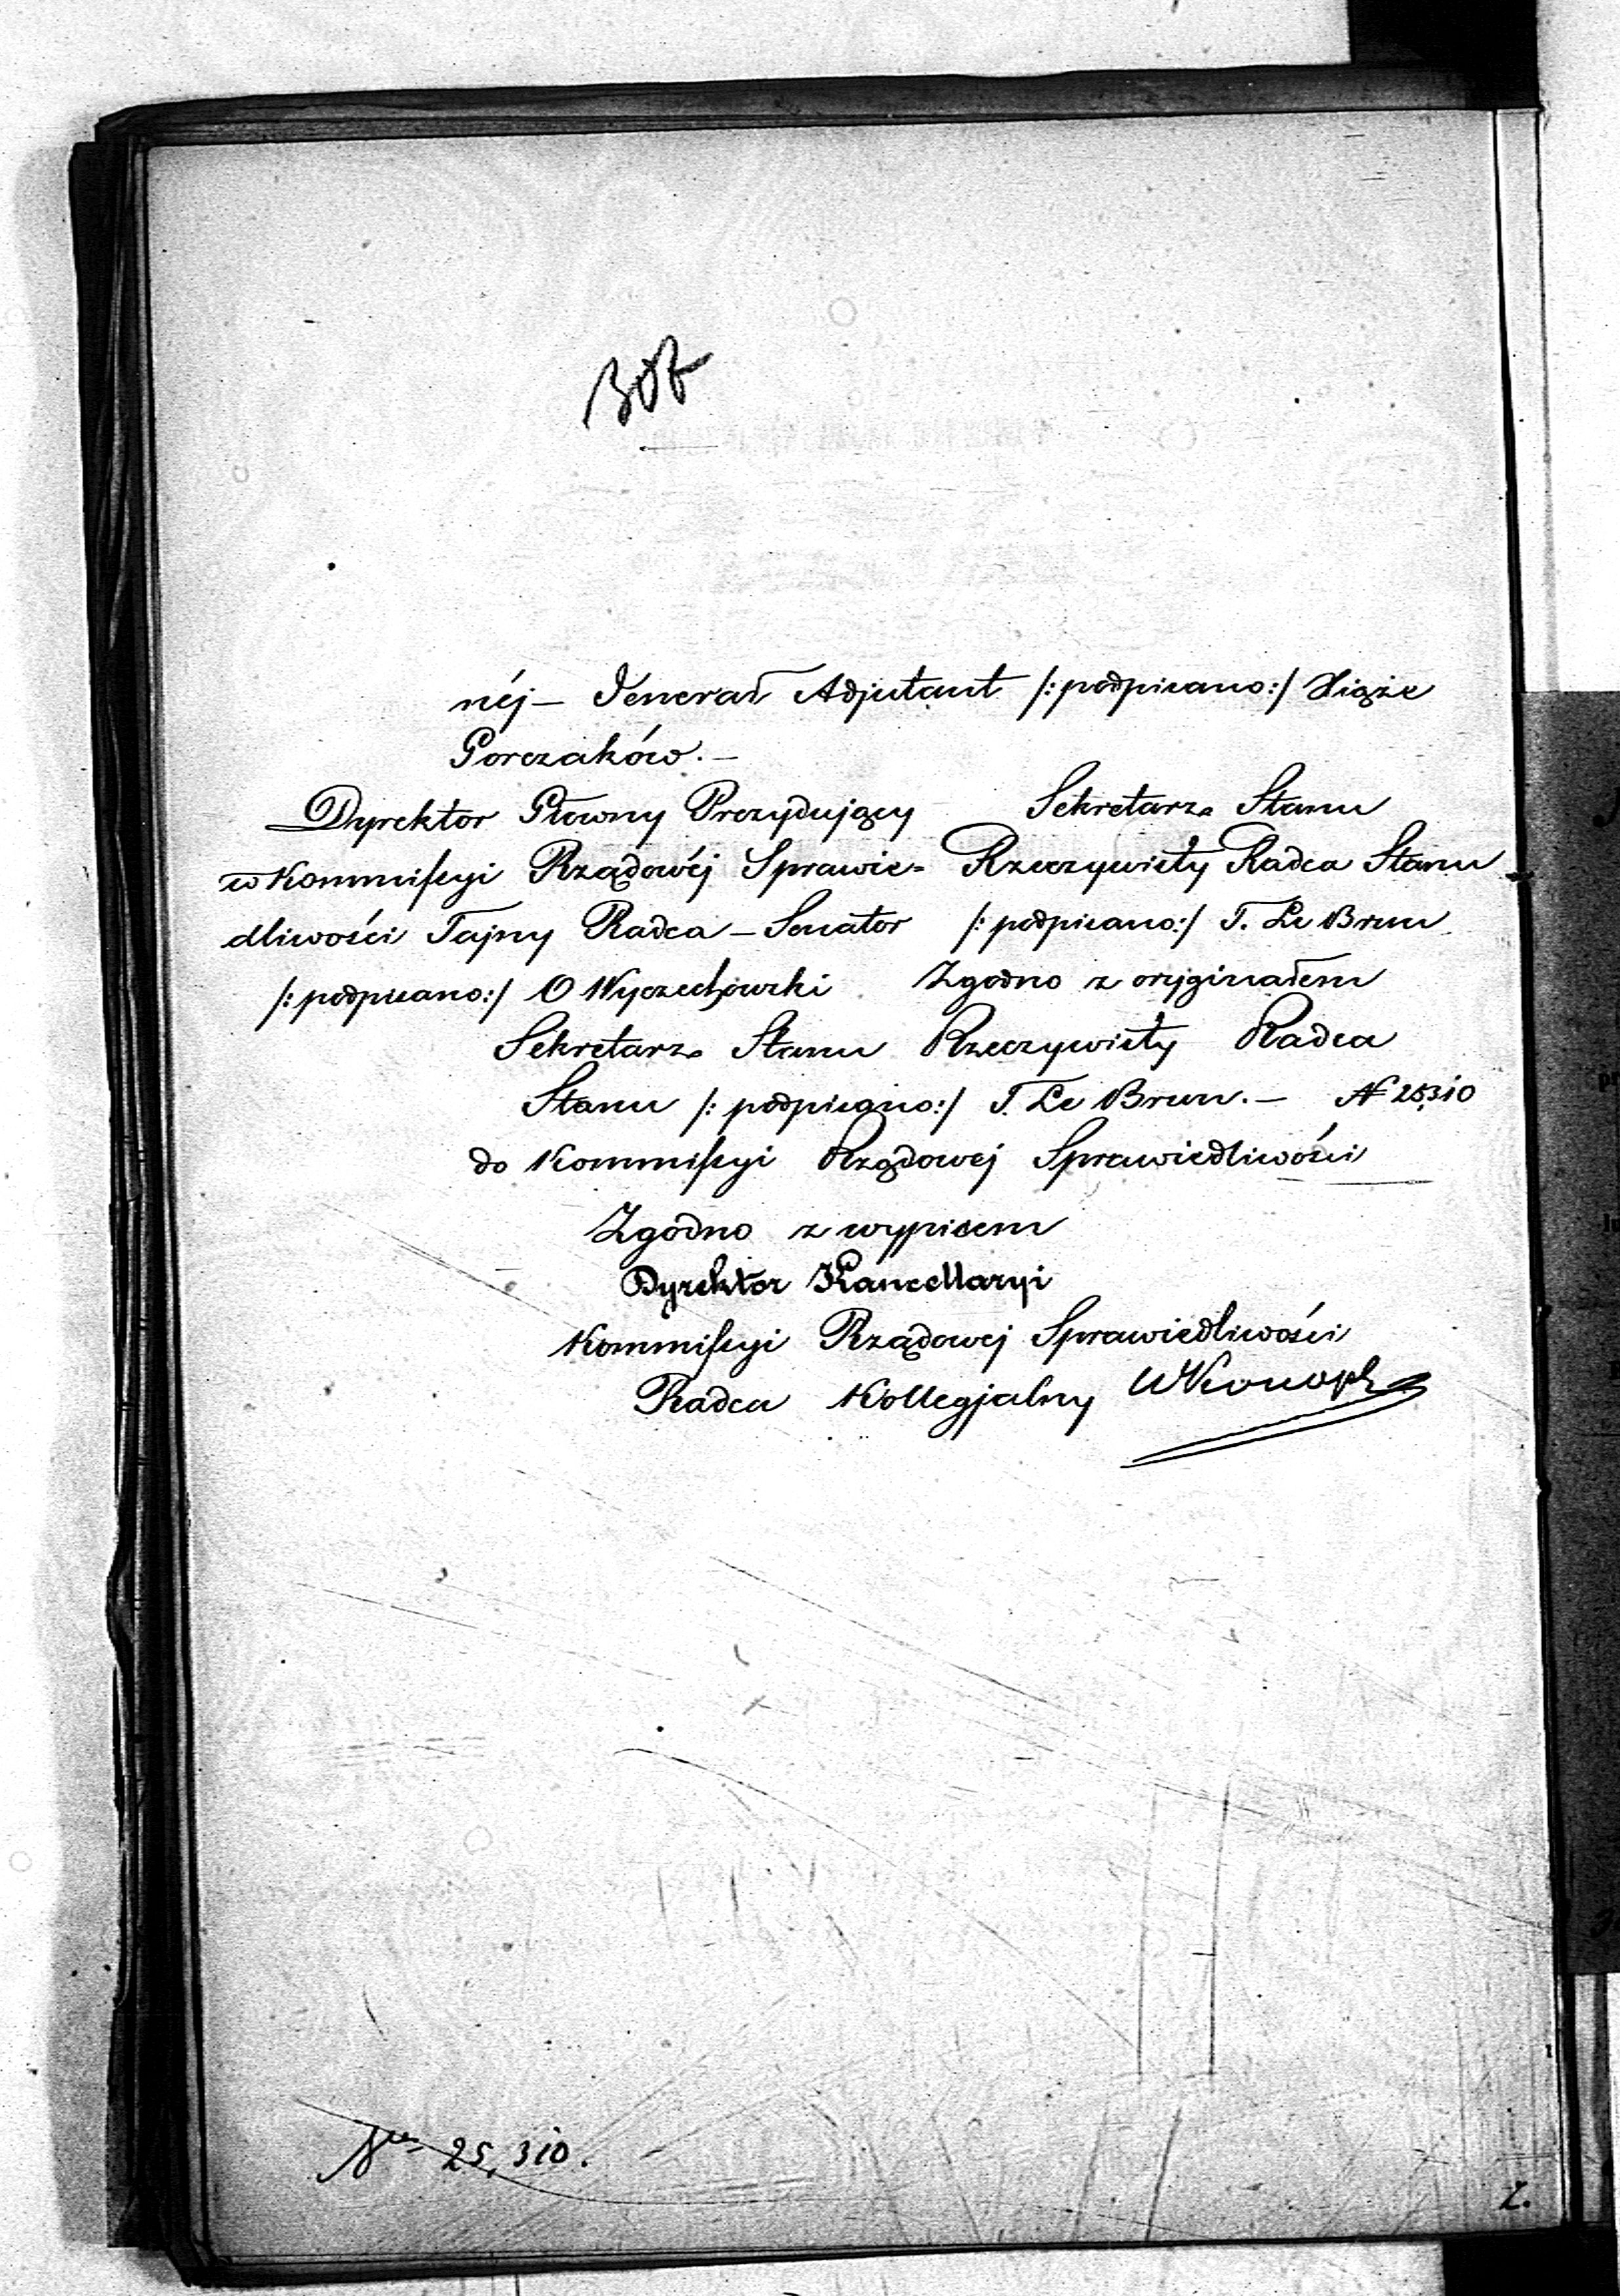 308
néj — Jenerał Adjutant /:podpisano:/ Xiąże
Gorczaków. —
Dyrektor Głowny Prezydujący Sekretarz Stanu
w Kommissyi Rządowéj Sprawie- Rzeczywisty Radca Stanu
dliwości Tajny Radca — Senator /:podpisano:/ T. Le Brun
/:podpisano:/ O Wyczechowski Zgodno z oryginałem
Sekretarz Stanu Rzeczywisty Radca
Stanu /:podpisano:/ T. Le Brun. — N 25310
do Kommissyi Rządowej Sprawiedliwości
Zgodno z wypisem
Dyrektor Kancellaryi
Kommissyi Rządowej Sprawiedliwości
Radca Kollegjalny
25,310.
2.